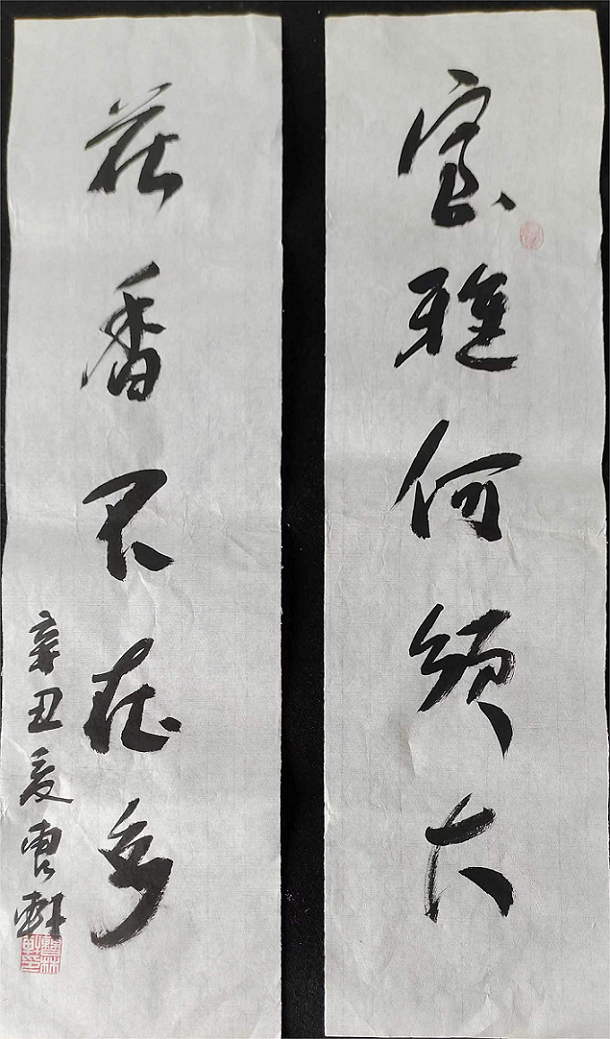 室雅何須大
花香不在多
辛丑夏曹軒